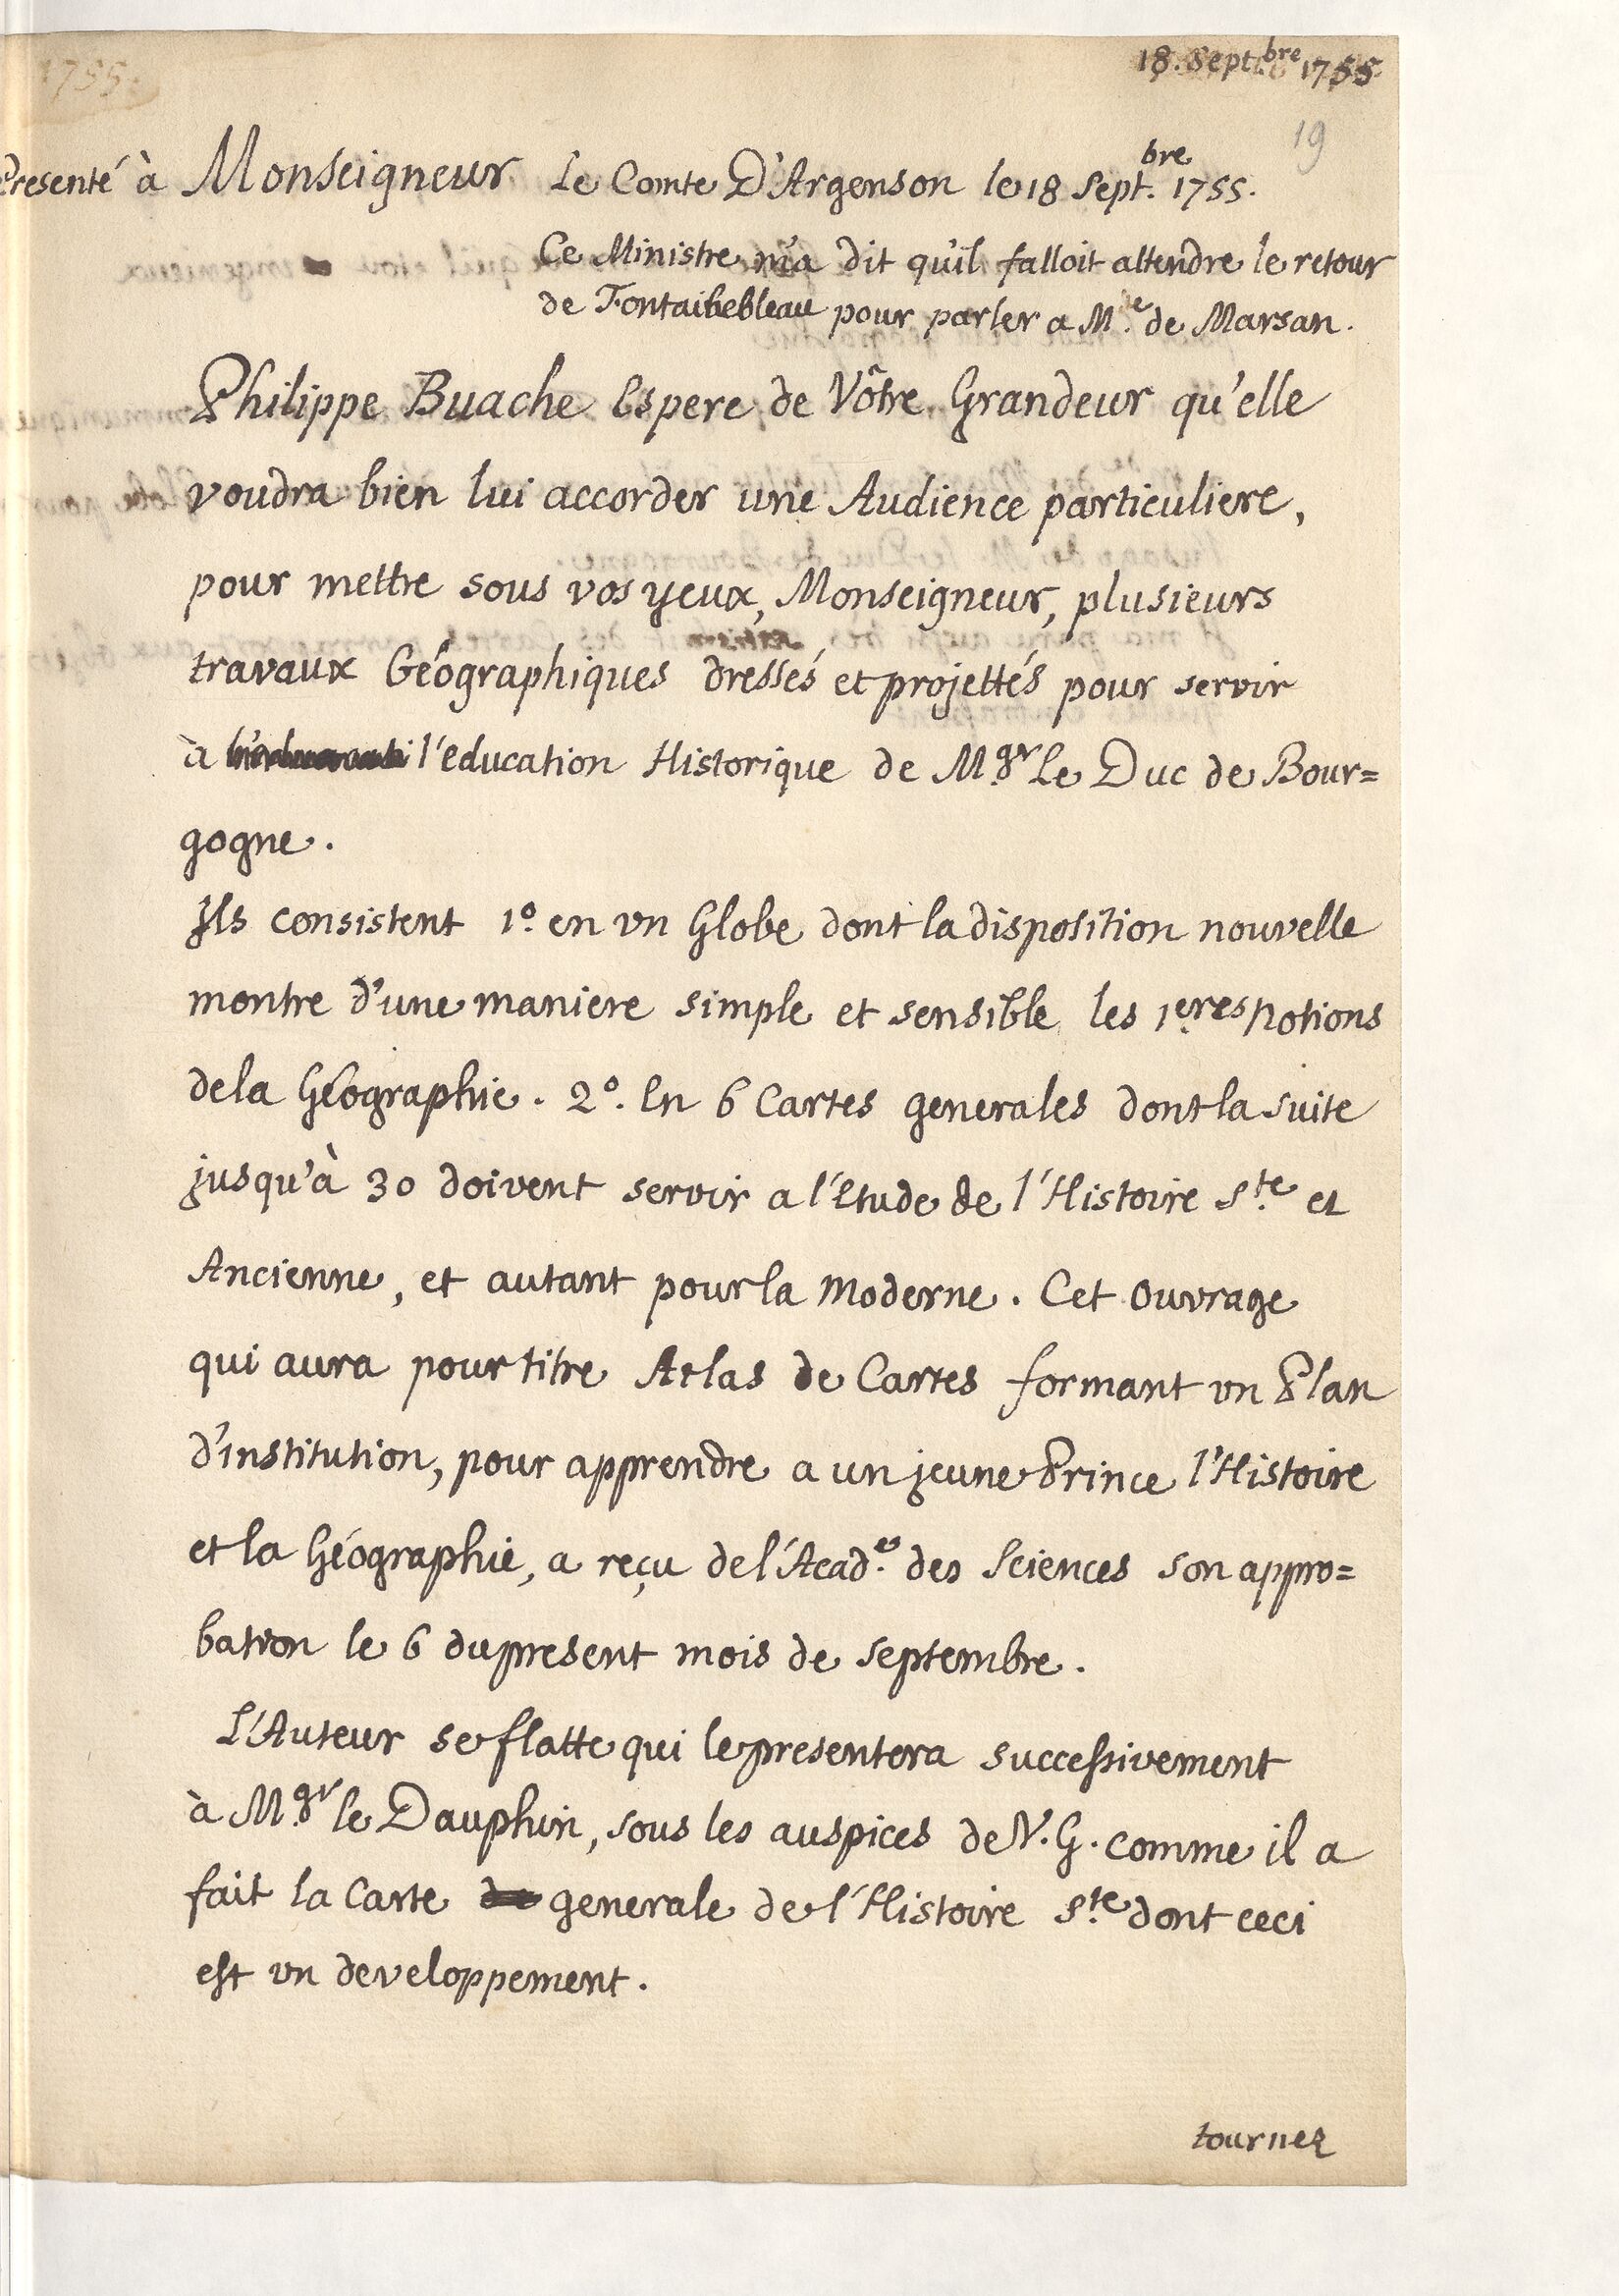 18. Septbre 1755
19
Presenté à Monseigneur Le Comte D'Argenson le 18 Sept.bre 1755.
Ce Ministre m'a dit qu'il falloit attendre le retour
de Fontainebleau pour parler a M.e de Marsan.
Philippe Buache Espere de Vôtre Grandeur qu'elle
voudra bien lui accorder une Audience particuliere,
pour mettre sous vos yeux, Monseigneur, plusieurs
travaux Géographiques dressés et projettés pour servir
à l'education Historique de M.gr Le Duc de Bour=
gogne.
Ils consistent 1.o en vn Globe dont la disposition nouvelle
montre d'une maniere simple et sensible les 1.eres Notions
de la Géographie. 2.o En 6 Cartes generales dont la suite
jusqu'à 30 doivent servir a l'Etude de l'Histoire S.te et
Ancienne, et autant pour la Moderne. Cet Ouvrage
qui aura pour titre Atlas de Cartes formant vn Plan
d'institution, pour apprendre a un jeune Prince l'Histoire
et la Géographie, a reçu de l'Acad.e des Sciences son appro=
bation le 6 du present mois de Septembre.
L'Auteur se flatte qui le presentera successivement
à M.gr le Dauphin, sous les auspices de V. G. comme il a
fait la Carte generale de l'Histoire S.te dont ceci
est vn developpement.
tournez